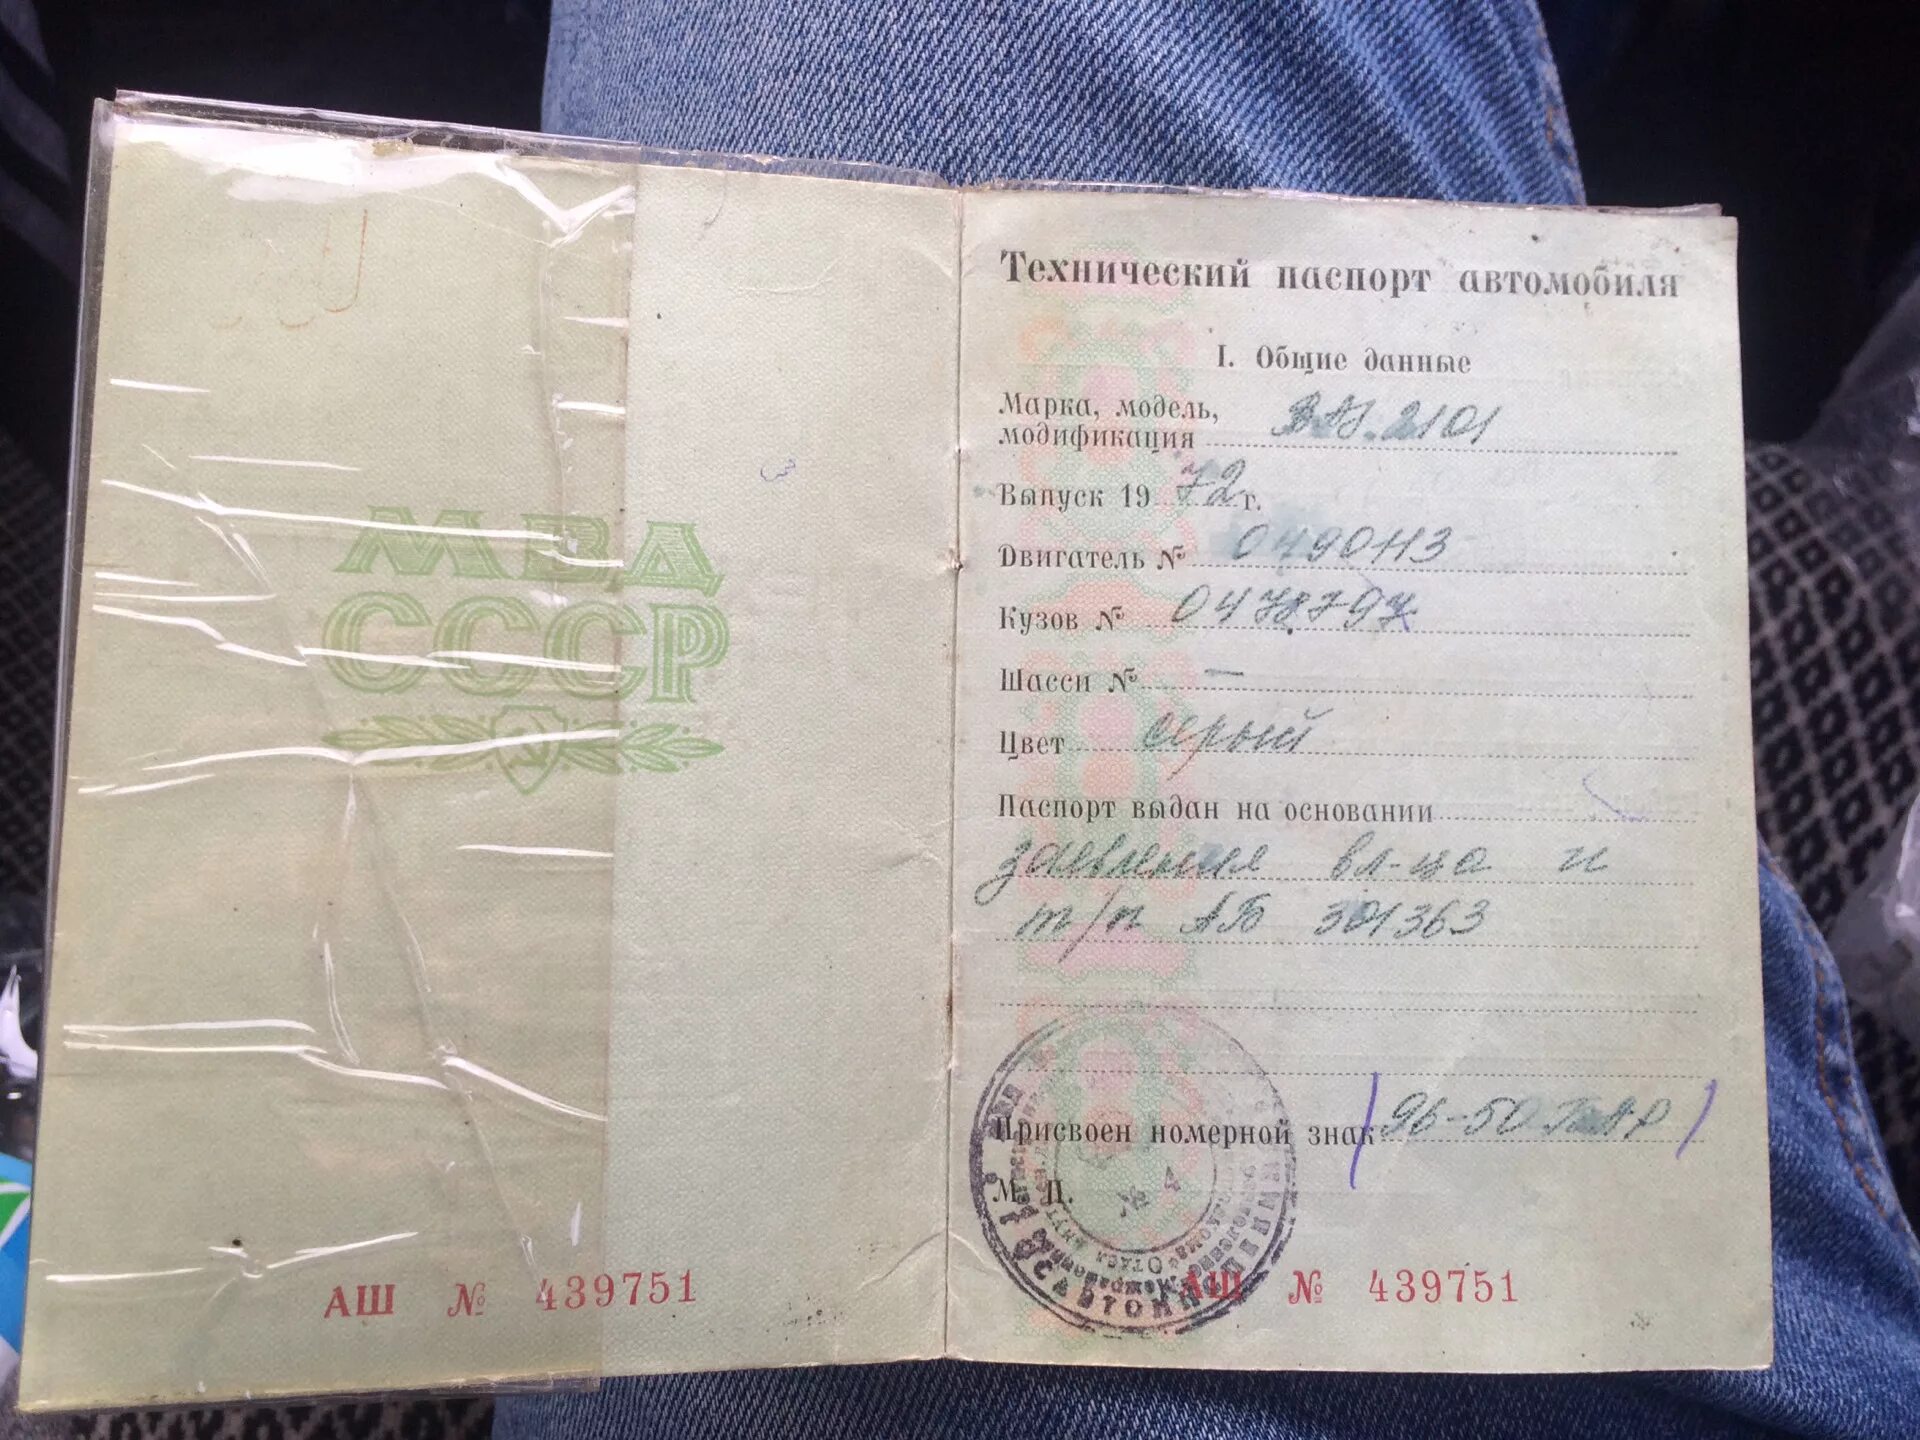 МВД
СССР
АШ № 439751
Технический паспорт автомобиля
I. Общие данные
Марка, модель,
модификация ВАЗ.2101
Выпуск 19 72 г.
Двигатель № 0490113
Кузов № 0478797
Шасси № —
Цвет серый
Паспорт выдан на основании
заявления вл-ца и
т/п АБ 301363
Присвоен номерной знак (96-50
М. П.
№ 4
АШ № 439751